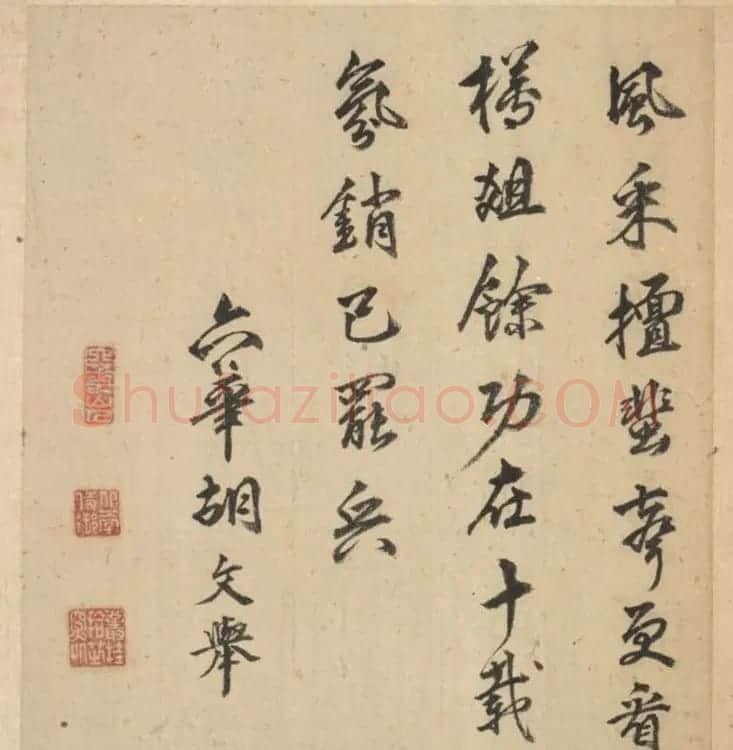 風采擅蜚聲更看
樽俎餘功在十載
氛銷已罷兵
六華胡文舉
Shufaziliao.COM